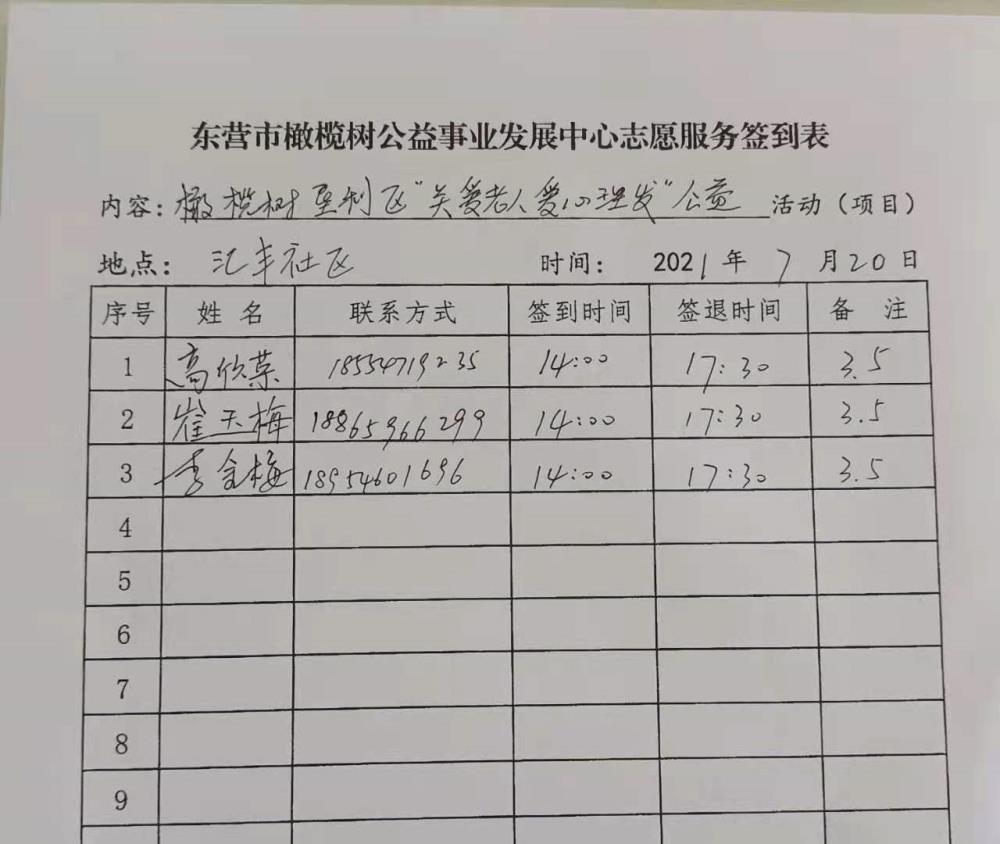 东营市橄榄树公益事业发展中心志愿服务签到表
内容：橄榄树垦利区“关爱老人爱心理发”公益 活动（项目）
地点：汇丰社区 时间：2021年7月20日
序号 姓名 联系方式 签到时间 签退时间 备 注
1 高欣荣 18554719235 14:00 17:30 3.5
2 崔天梅 18865966299 14:00 17:30 3.5
3 李金梅 18954601696 14:00 17:30 3.5
4
5
6
7
8
9